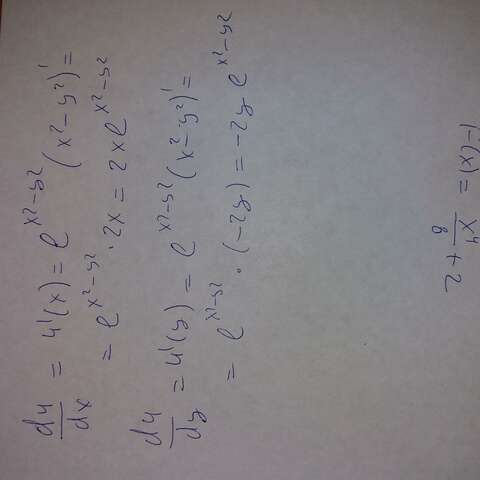 du/dx = u'(x) = e^(x²-y²) (x²-y²)' =
= e^(x²-y²) · 2x = 2x e^(x²-y²)
du/dy = u'(y) = e^(x²-y²) (x²-y²)' =
= e^(x²-y²) · (-2y) = -2y e^(x²-y²)